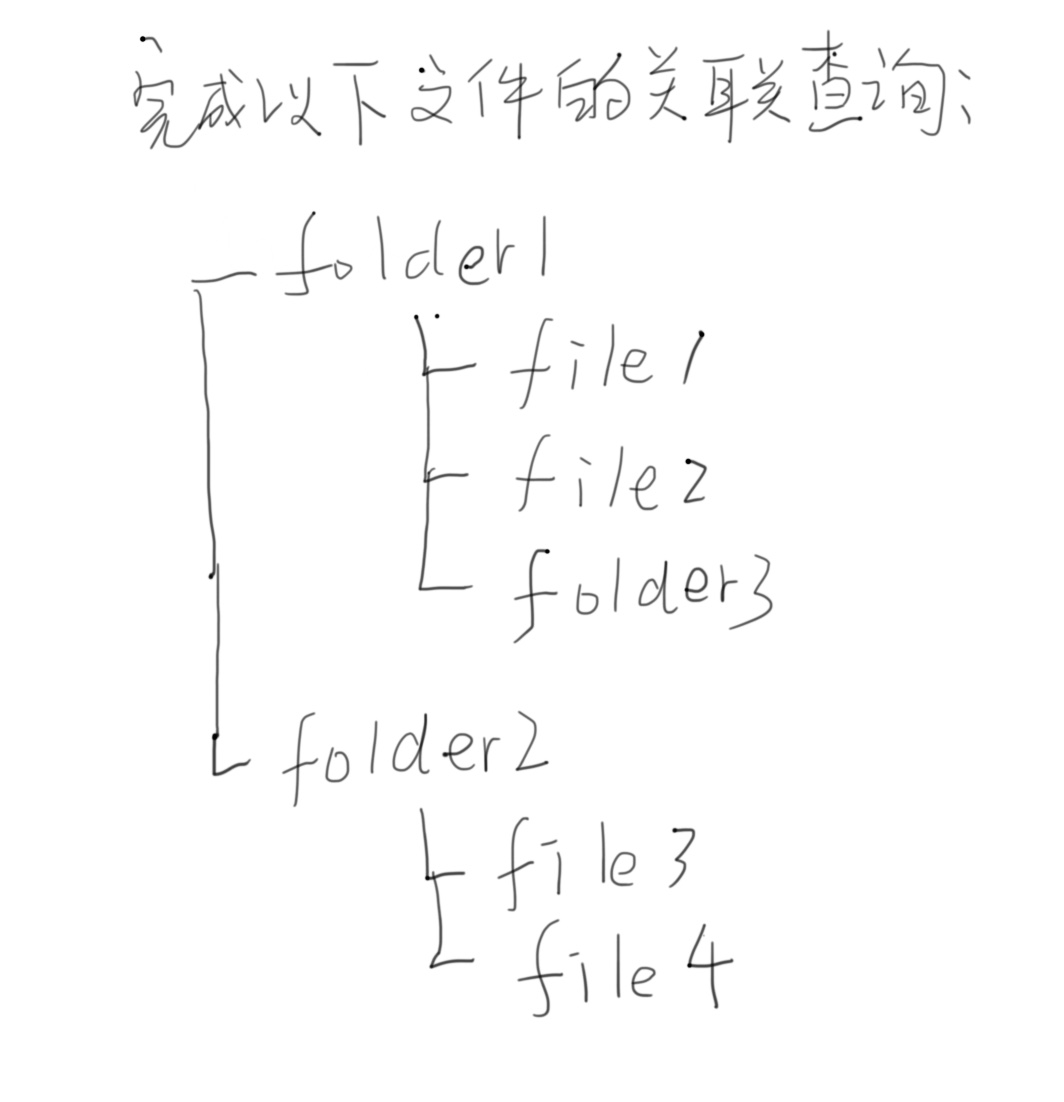 完成以下文件的关联查询:
folder1
file1
file2
folder3
folder2
file3
file4